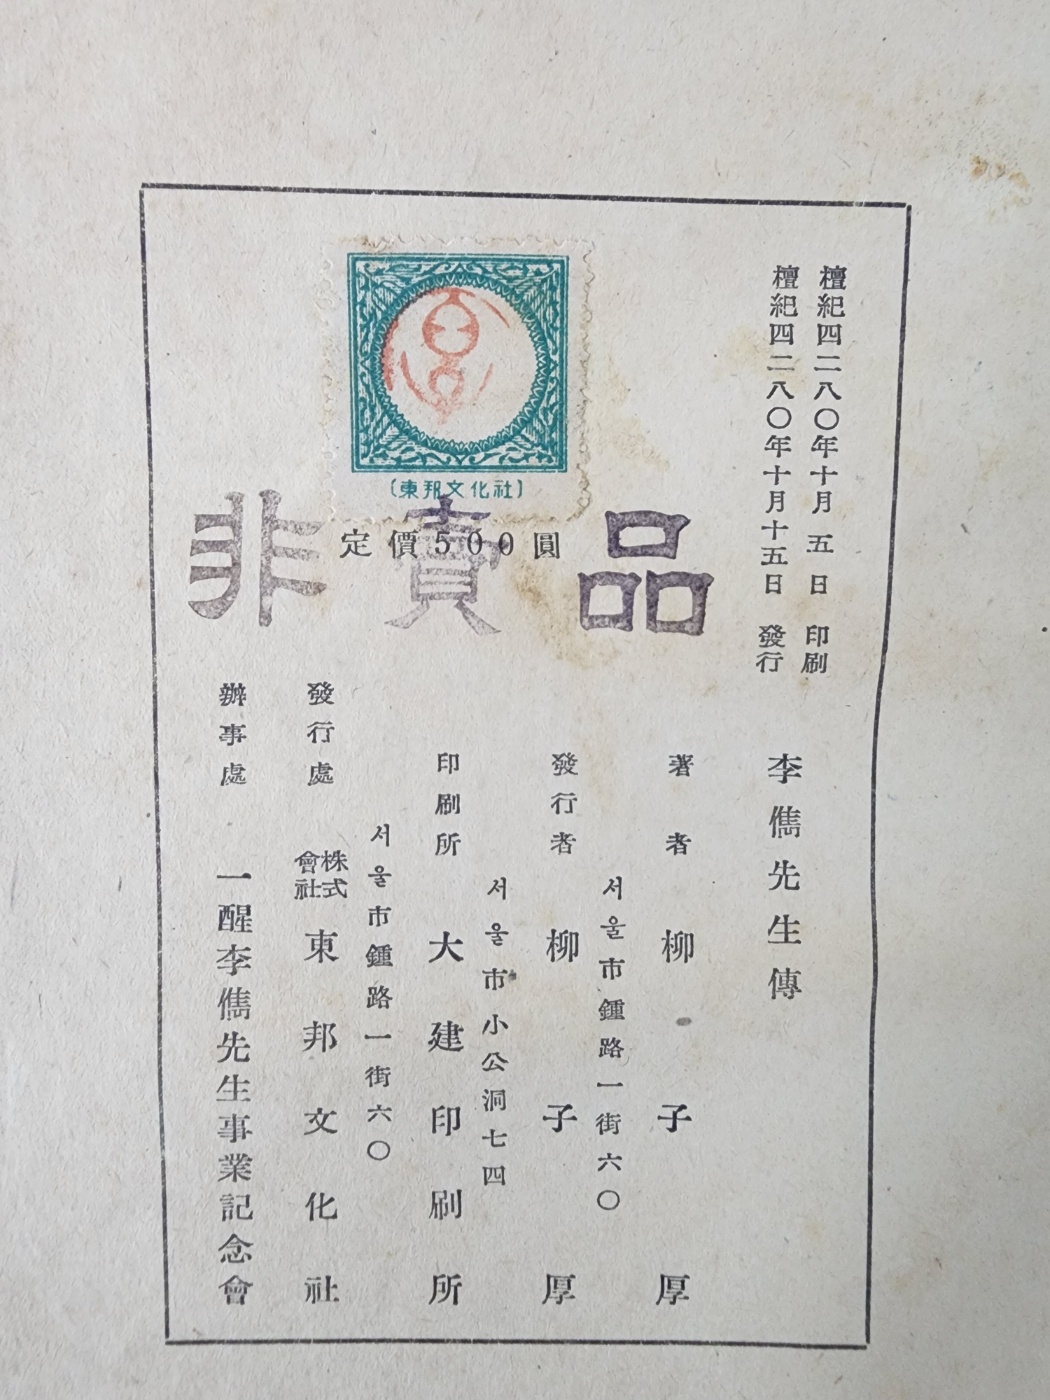 檀紀四二八〇年十月 五 日 印刷
檀紀四二八〇年十月十五日 發行
李儁先生傳
著者 柳子厚
서울市鍾路一街六〇
發行者 柳子厚
서울市小公洞七四
印刷所 大建印刷所
서울市鍾路一街六〇
發行處 株式會社 東邦文化社
辦事處 一醒李儁先生事業記念會
(東邦文化社)
定價500圓
非賣品